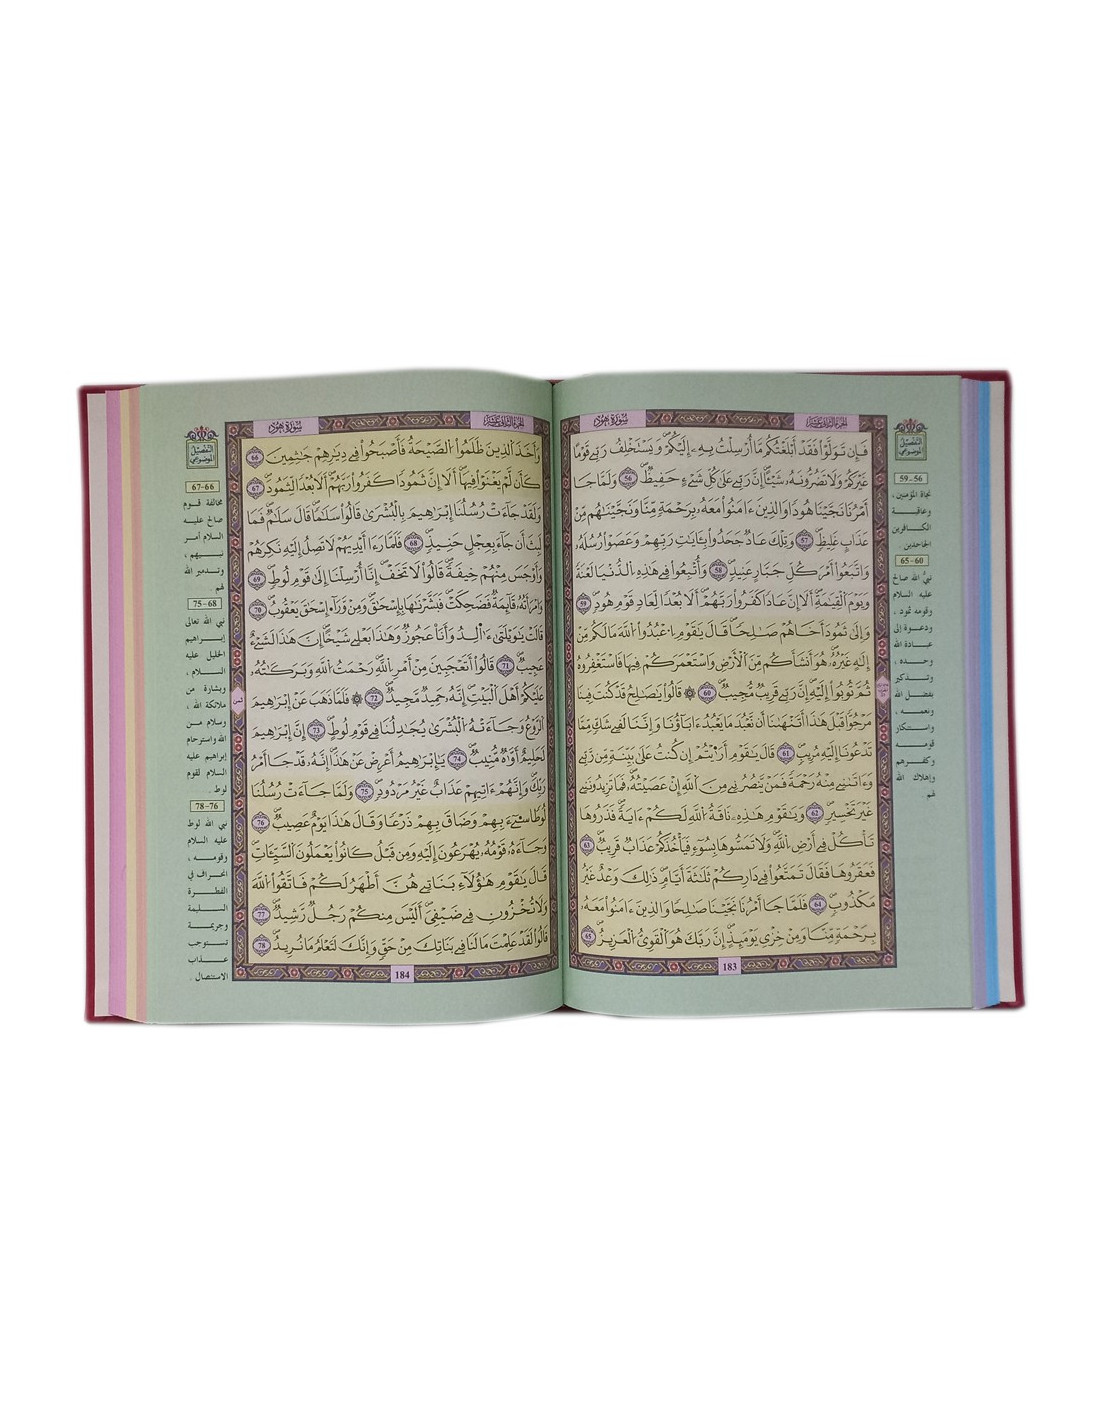 سورة هود
الجزء الثاني عشر
فَإِن تَوَلَّوْاْ فَقَدَ اَبْلَغْتُكُم مَّا أُرْسِلْتُ بِهِۦ إِلَيْكُمْ وَيَسْتَخْلِفُ رَبِّے قَوْماً
غَيْرَكُمْ وَلَا تَضُرُّونَهُۥ شَيْـٔاًۖ اِنَّ رَبِّے عَلَىٰ كُلِّ شَےْءٍ حَفِيظٌ 56 وَلَمَّا جَا
أَمْرُنَا نَجَّيْنَا هُوداً وَالذِينَ ءَامَنُواْ مَعَهُۥ بِرَحْمَةٍ مِّنَّا وَنَجَّيْنَٰهُم مِّنْ
عَذَابٍ غَلِيظٍ 57 وَتِلْكَ عَادٌ جَحَدُواْ بِـَٔايَٰتِ رَبِّهِمْ وَعَصَوْاْ رُسُلَهُۥ
وَاتَّبَعُواْ أَمْرَ كُلِّ جَبَّارٍ عَنِيدٍ 58 وَأُتْبِعُواْ فِے هَٰذِهِ الدُّنْيَا لَعْنَةً
وَيَوْمَ اَلْقِيَٰمَةِ أَلَا إِنَّ عَاداً كَفَرُواْ رَبَّهُمْ أَلَا بُعْداً لِّعَادٍ قَوْمِ هُودٍ 59
وَإِلَىٰ ثَمُودَ أَخَاهُمْ صَٰلِحاً قَالَ يَٰقَوْمِ اِ۟عْبُدُواْ اللَّهَ مَا لَكُم مِّنِ
اِلَٰهٍ غَيْرُهُۥ هُوَ أَنشَأَكُم مِّنَ اَلْأَرْضِ وَاسْتَعْمَرَكُمْ فِيهَا فَاسْتَغْفِرُوهُ
ثُمَّ تُوبُواْ إِلَيْهِ إِنَّ رَبِّے قَرِيبٌ مُّجِيبٌ 60 قَالُواْ يَٰصَٰلِحُ قَدْ كُنتَ فِينَا
مَرْجُوّاً قَبْلَ هَٰذَا أَتَنْهَيٰنَا أَن نَّعْبُدَ مَا يَعْبُدُ ءَابَآؤُنَا وَإِنَّنَا لَفِے شَكٍّ مِّمَّا
تَدْعُونَا إِلَيْهِ مُرِيبٍ 61 قَالَ يَٰقَوْمِ أَرَٰٓيْتُمْ إِن كُنتُ عَلَىٰ بَيِّنَةٍ مِّن رَّبِّے
وَءَاتَيٰنِے مِنْهُ رَحْمَةً فَمَنْ يَّنصُرُنِے مِنَ اَللَّهِ إِنْ عَصَيْتُهُۥ فَمَا تَزِيدُونَنِے
غَيْرَ تَخْسِيرٍ 62 وَيَٰقَوْمِ هَٰذِهِۦ نَاقَةُ اللَّهِ لَكُمُ ءَايَةً فَذَرُوهَا
تَأْكُلْ فِے أَرْضِ اِللَّهِ وَلَا تَمَسُّوهَا بِسُوٓءٍ فَيَأْخُذَكُمْ عَذَابٌ قَرِيبٌ 63
فَعَقَرُوهَا فَقَالَ تَمَتَّعُواْ فِے دَارِكُمْ ثَلَٰثَةَ أَيَّامٍ ذَٰلِكَ وَعْدٌ غَيْرُ
مَكْذُوبٍ 64 فَلَمَّا جَا أَمْرُنَا نَجَّيْنَا صَٰلِحاً وَالذِينَ ءَامَنُواْ مَعَهُۥ
بِرَحْمَةٍ مِّنَّا وَمِنْ خِزْيِ يَوْمَئِذٍ إِنَّ رَبَّكَ هُوَ اَلْقَوِيُّ الْعَزِيزُ 65
183
التفصيل
الموضوعي
59-56
نجاة المؤمنين ،
وعاقبة
الكافرين
الجاحدين .
65-60
نبيُّ الله صالح
عليه السلام
وقومه ثمود ،
ودعوة إلى
عبادة الله
وحده ،
وتذكير
بفضل الله
ونعمه ،
واستنكار
قومه
وكفرهم
وإهلاك الله
لهم
سورة هود
الجزء الثاني عشر
وَأَخَذَ اَلذِينَ ظَلَمُواْ الصَّيْحَةُ فَأَصْبَحُواْ فِے دِيٰرِهِمْ جَٰثِمِينَ 66
كَأَن لَّمْ يَغْنَوْاْ فِيهَا أَلَا إِنَّ ثَمُوداً كَفَرُواْ رَبَّهُمْ أَلَا بُعْداً لِّثَمُودَ 67
وَلَقَدْ جَآءَتْ رُسُلُنَا إِبْرَٰهِيمَ بِالْبُشْر۪ىٰ قَالُواْ سَلَٰماً قَالَ سَلَٰمٌ فَمَا
لَبِثَ أَن جَآءَ بِعِجْلٍ حَنِيذٍ 68 فَلَمَّا رَءَا أَيْدِيَهُمْ لَا تَصِلُ إِلَيْهِ نَكِرَهُمْ
وَأَوْجَسَ مِنْهُمْ خِيفَةً قَالُواْ لَا تَخَفِ اِنَّا أُرْسِلْنَا إِلَىٰ قَوْمِ لُوطٍ 69
وَامْرَأَتُهُۥ قَآئِمَةٌ فَضَحِكَتْ فَبَشَّرْنَٰهَا بِإِسْحَٰقَ وَمِنْ وَّرَآءِ اِسْحَٰقَ يَعْقُوبُ 70
قَالَتْ يَٰوَيْلَتَىٰ ءَآلِدُ وَأَنَا عَجُوزٌ وَهَٰذَا بَعْلِے شَيْخاً اِنَّ هَٰذَا لَشَےْءٌ
عَجِيبٌ 71 قَالُواْ أَتَعْجَبِينَ مِنَ اَمْرِ اِللَّهِ رَحْمَتُ اللَّهِ وَبَرَكَٰتُهُۥ
عَلَيْكُمُ أَهْلَ اَلْبَيْتِ إِنَّهُۥ حَمِيدٌ مَّجِيدٌ 72 فَلَمَّا ذَهَبَ عَنِ اِبْرَٰهِيمَ
اَلرَّوْعُ وَجَآءَتْهُ الْبُشْر۪ىٰ يُجَٰدِلُنَا فِے قَوْمِ لُوطٍ 73 اِنَّ إِبْرَٰهِيمَ
لَحَلِيمٌ أَوَّٰهٌ مُّنِيبٌ 74 يَٰإِبْرَٰهِيمُ أَعْرِضْ عَنْ هَٰذَا إِنَّهُۥ قَدْ جَا أَمْرُ
رَبِّكَ وَإِنَّهُمُۥ ءَاتِيهِمْ عَذَابٌ غَيْرُ مَرْدُودٍ 75 وَلَمَّا جَآءَتْ رُسُلُنَا
لُوطاً سِےٓءَ بِهِمْ وَضَاقَ بِهِمْ ذَرْعاً وَقَالَ هَٰذَا يَوْمٌ عَصِيبٌ 76
وَجَآءَهُۥ قَوْمُهُۥ يُهْرَعُونَ إِلَيْهِ وَمِن قَبْلُ كَانُواْ يَعْمَلُونَ اَلسَّيِّـَٔاتِ
قَالَ يَٰقَوْمِ هَٰٓؤُلَآءِ بَنَاتِے هُنَّ أَطْهَرُ لَكُمْ فَاتَّقُواْ اللَّهَ
وَلَا تُخْزُونِ فِے ضَيْفِيَ أَلَيْسَ مِنكُمْ رَجُلٌ رَّشِيدٌ 77
قَالُواْ لَقَدْ عَلِمْتَ مَا لَنَا فِے بَنَاتِكَ مِنْ حَقٍّ وَإِنَّكَ لَتَعْلَمُ مَا نُرِيدُ 78
184
ثمن
التفصيل
الموضوعي
67-66
مخالفة قوم
صالح عليه
السلام أمر
نبيهم ،
وتدمير الله
لهم .
75-68
نبي الله تعالى
إبراهيم
الخليل عليه
السلام ،
وبشارة من
ملائكة الله ،
وسلام من
الله واسترحام
إبراهيم عليه
السلام لقوم
لوط .
78-76
نبي الله لوط
عليه السلام
وقومه ،
انحراف في
الفطرة
السليمة
وجريمة
تستوجب
عذاب
الاستئصال .